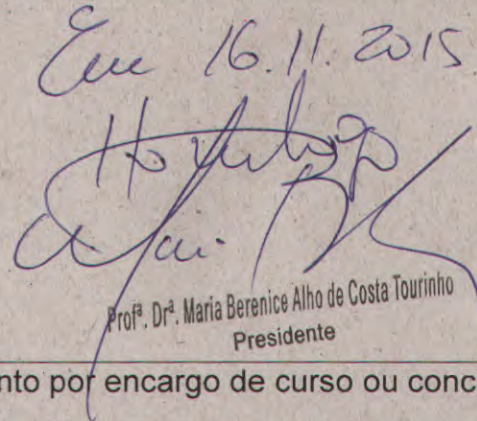 Em 16.11.2015
Homologo
Profª. Drª. Maria Berenice Alho de Costa Tourinho
Presidente
nto por encargo de curso ou conc